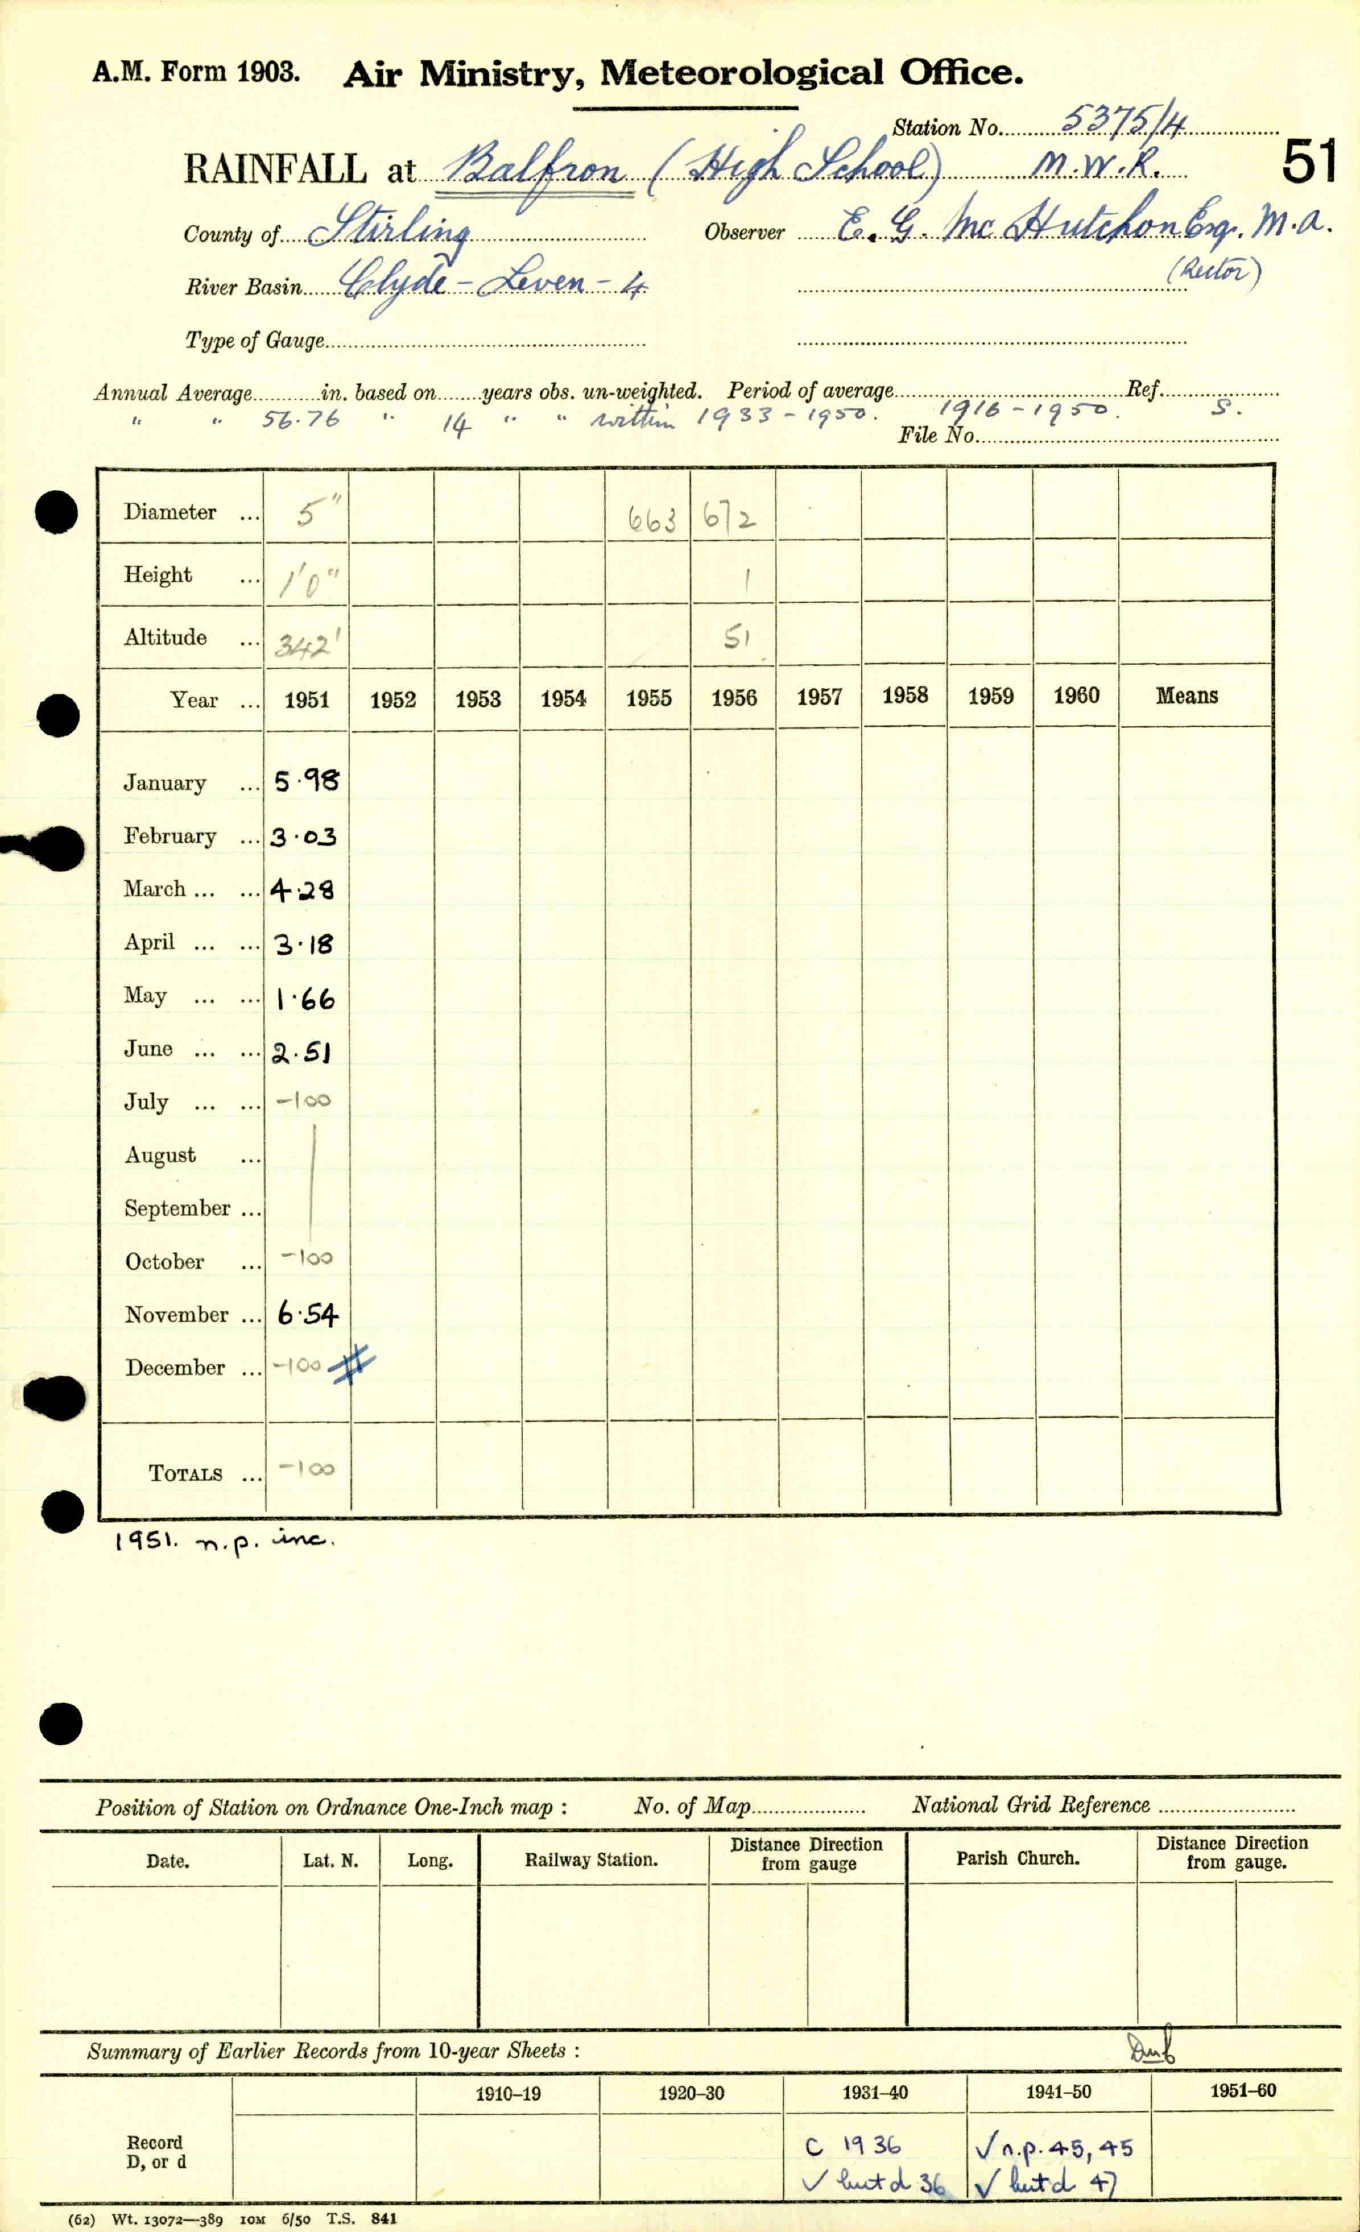 A.M. Form 1903. Air Ministry, Meteorological Office.
Station No. 5375/4
RAINFALL at Balfron (High School) M.W.R. 51
County of Stirling Observer E. G. Mc Hutchon Esq. M.A.
(Rector)
River Basin Clyde - Leven - 4
Type of Gauge
Annual Average in. based on years obs. un-weighted. Period of average Ref.
" " 56.76 " 14 " " within 1933-1950. 1916-1950. S.
File No.
Diameter ... 5" 663 672
Height ... 1'0" 1
Altitude ... 342' 51
Year ... 1951 1952 1953 1954 1955 1956 1957 1958 1959 1960 Means
January ... 5.98
February ... 3.03
March ... ... 4.28
April ... ... 3.18
May ... ... 1.66
June ... ... 2.51
July ... ... -100
August ...
September ...
October ... -100
November ... 6.54
December ... -100 #
TOTALS ... -100
1951. n.p. inc.
Position of Station on Ordnance One-Inch map : No. of Map National Grid Reference
Date. Lat. N. Long. Railway Station. Distance Direction from gauge Parish Church. Distance Direction from gauge.
Summary of Earlier Records from 10-year Sheets :
1910–19 1920–30 1931–40 1941–50 1951–60
Record D, or d
C 1936 ✓ n.p. 45, 45
✓ but d 36 ✓ but d 47
(62) Wt. 13072—389 10M 6/50 T.S. 841